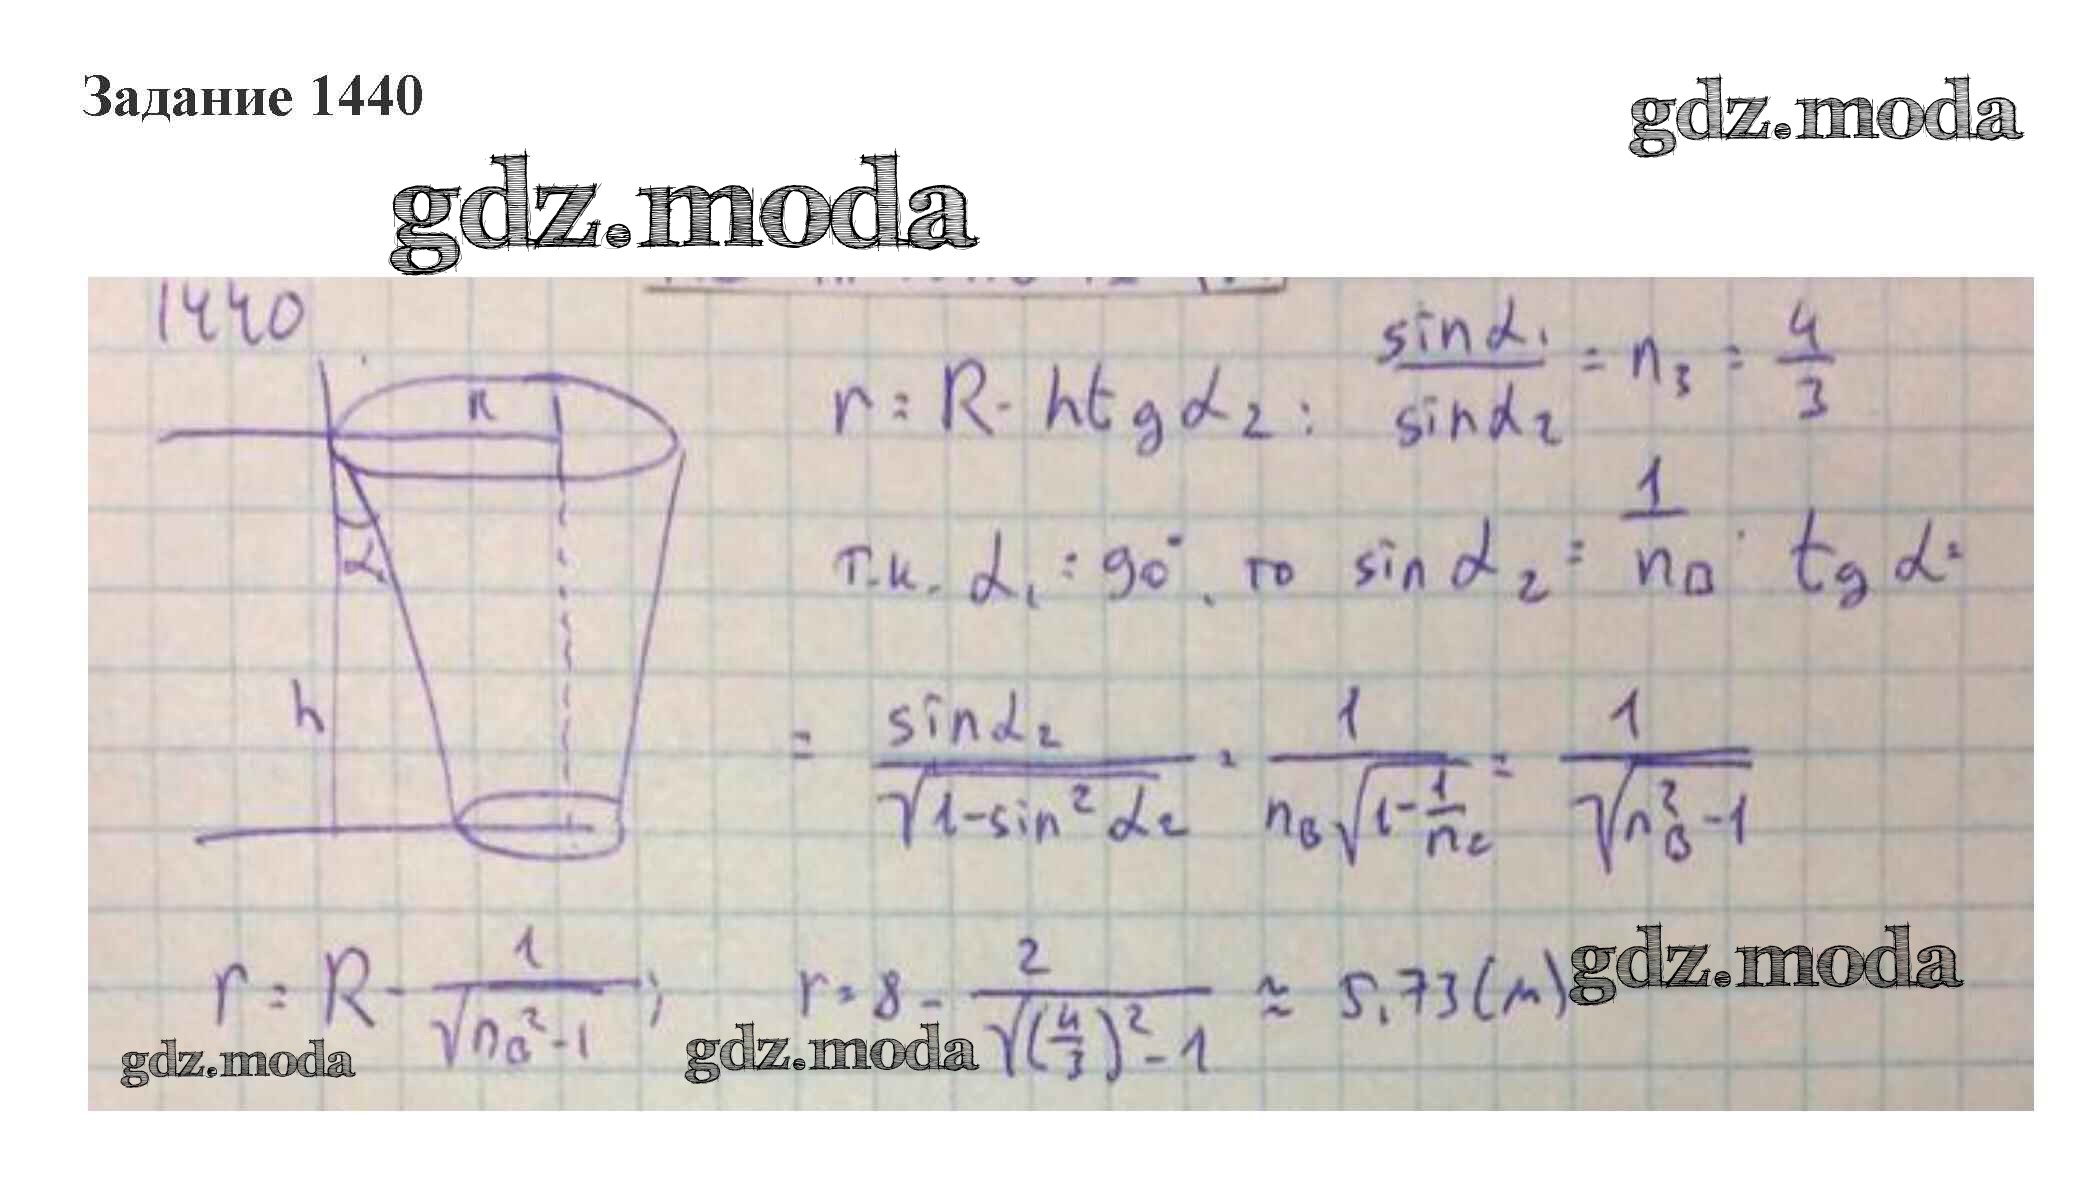 Задание 1440
gdz.moda
gdz.moda
1440
R
α₁
h
r = R - htgα₂ : sinα₁/sinα₂ = n₃ = 4/3
т.к. α₁ = 90°, то sinα₂ = 1/nв. tgα =
= sinα₂/√(1-sin²α₂) = 1/(nв√(1-1/n₂)) = 1/√(nв²-1)
r = R - 1/√(nв²-1) ; r = 8 - 2/√((4/3)²-1) ≈ 5,73(м)
gdz.moda
gdz.moda
gdz.moda